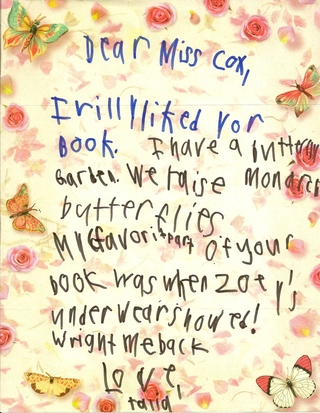 Dear Miss Cox,
I rilly liked yor
Book. I have a butterfly
Garden. We raise monarch
butterflies.
My favorit part of your
book was when Zoey's
underwear showed!
Wright me back
Love,